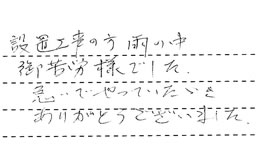 設置工事の方雨の中
御苦労様でした。
急いでやっていただき
ありがとうございました。